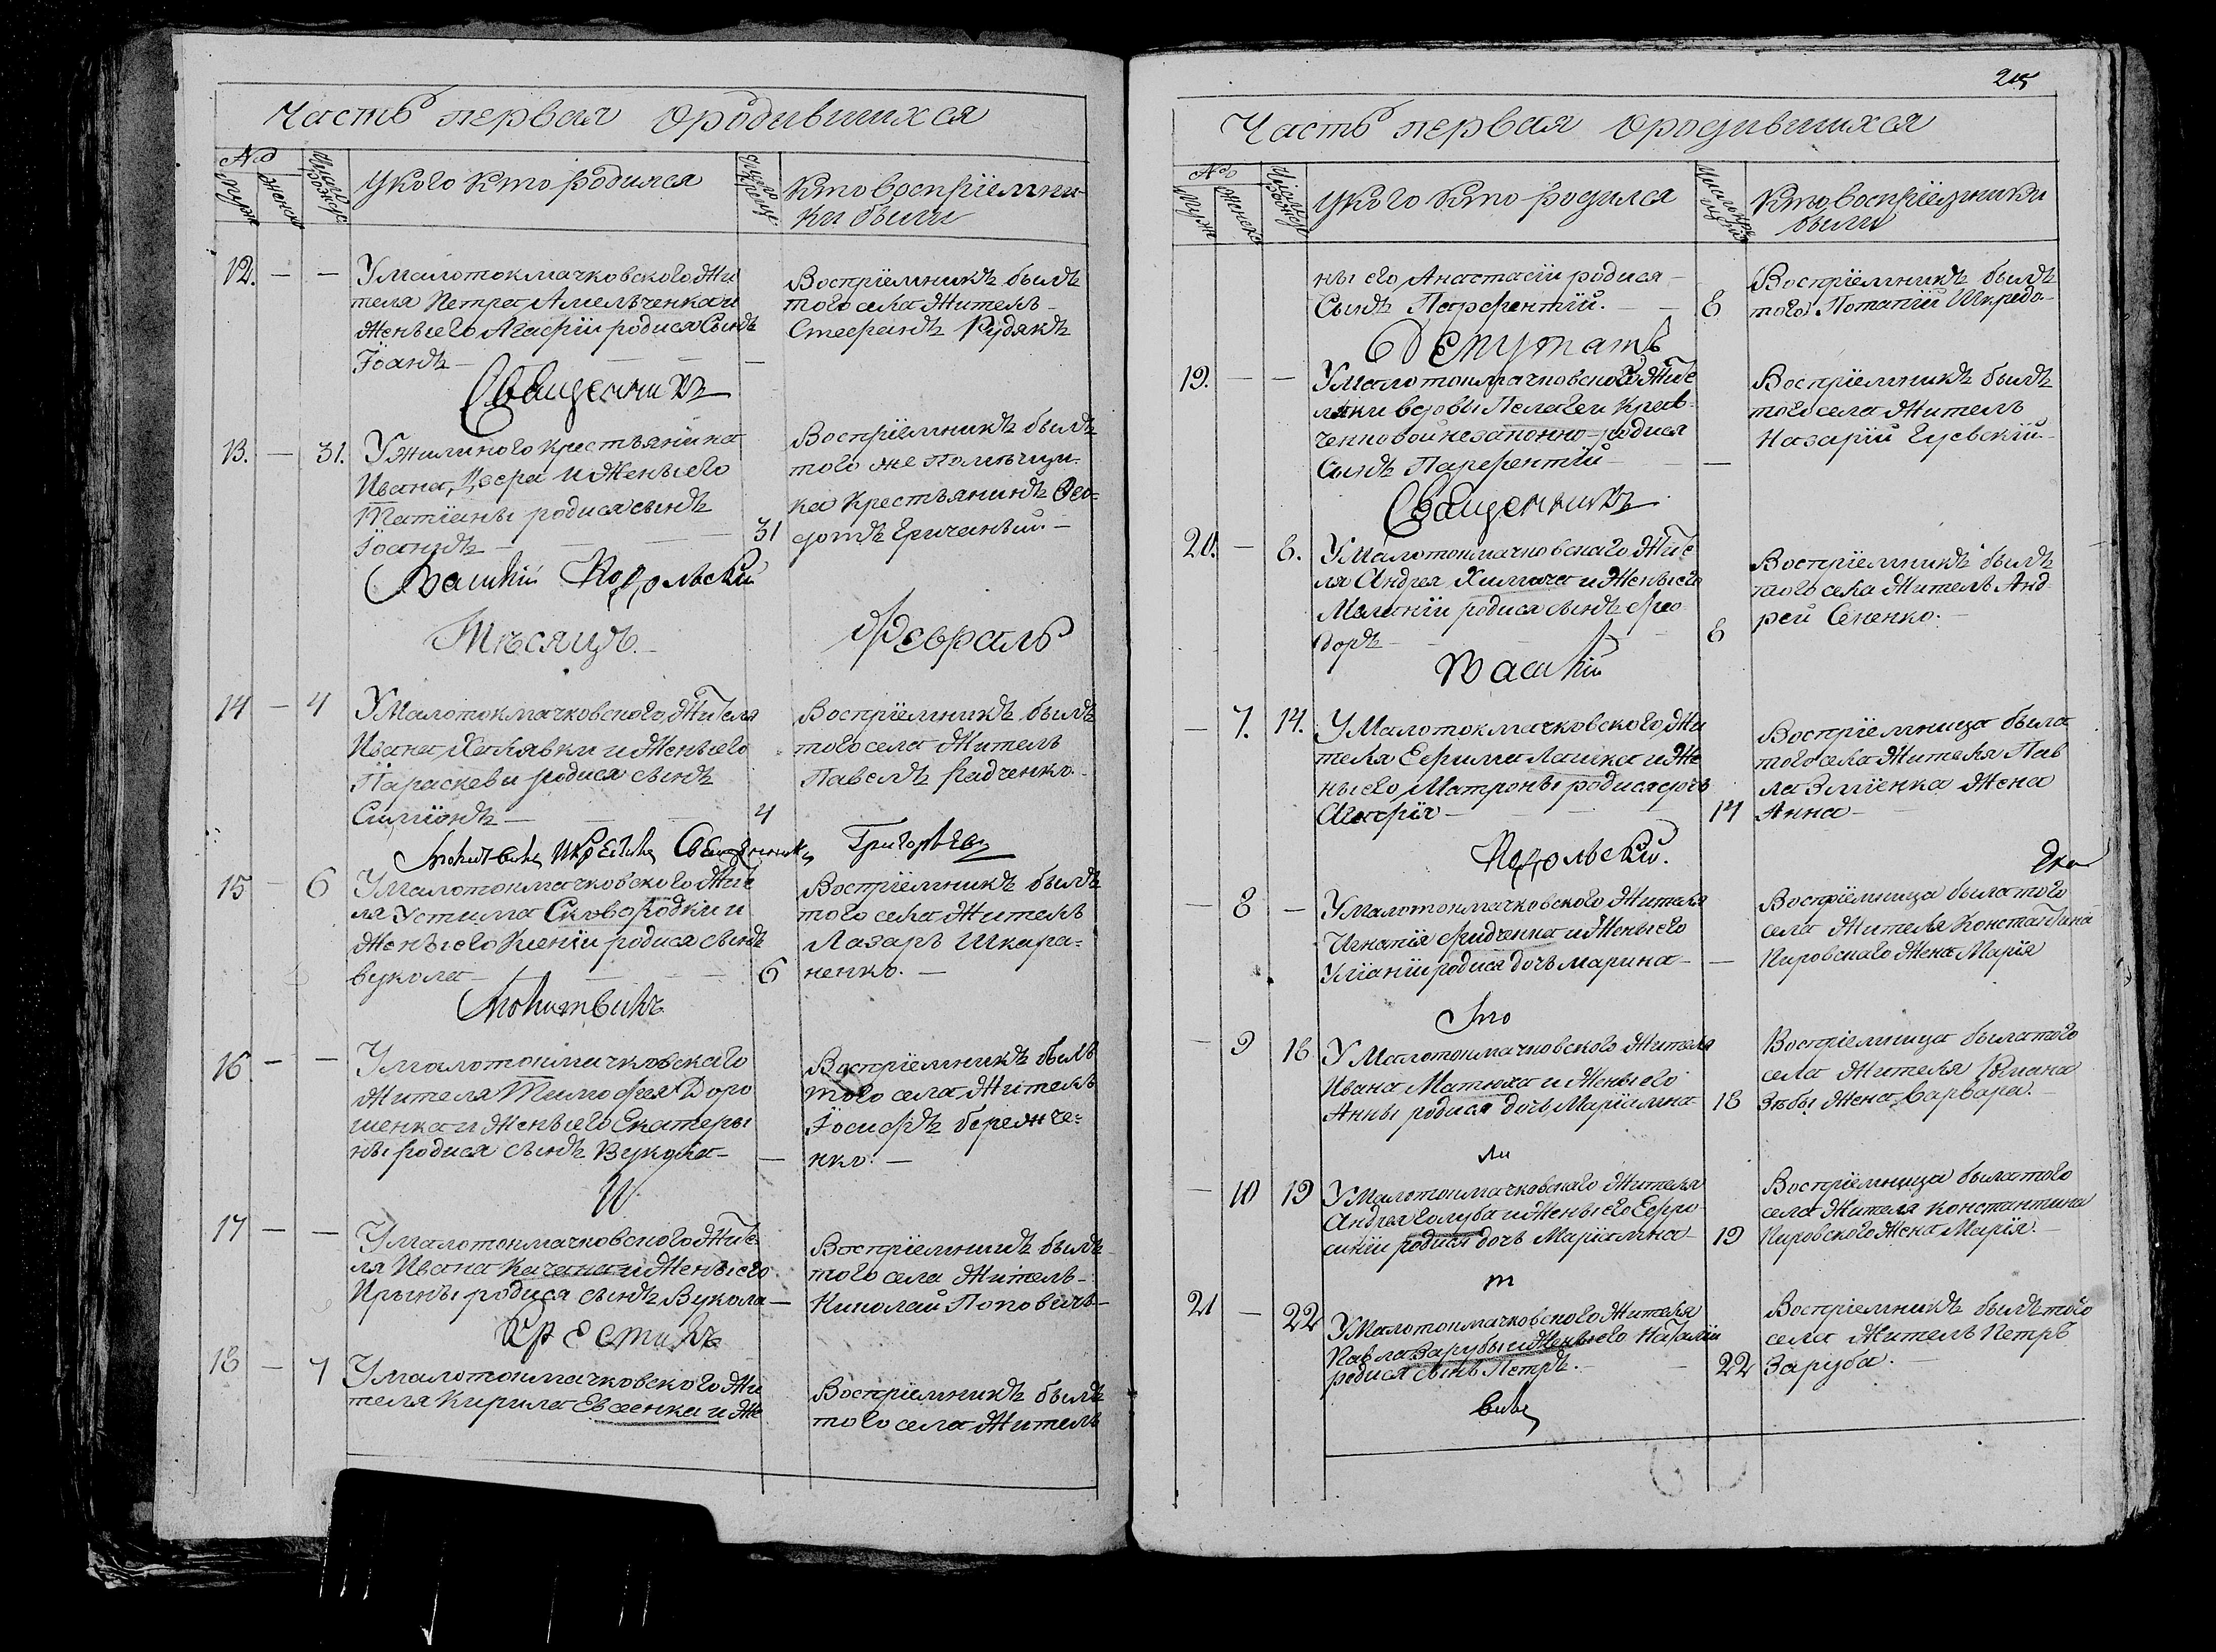 Часть первая о родившихся
№
Мужск
Женск
Число рожде
У кого кто родился
Число креще
Кто восприемни-
ки были
12. — — У малотокмачковского жи
теля Петра Амельченка и
жены его Агафіи родися сынъ
Іоанъ —
Воспріемникъ былъ
того села житель
Стефанъ Рудякъ
Священникъ
13. — 31. У жилиного крестьянина
Ивана и жены его
Татіаны родися сынъ
Іоаннъ — 31
Воспріемникъ былъ
того же помѣщи-
ка крестьянинъ Ѳео-
дотъ Гричаный. —
Подольскій
Мѣсяцъ. Февраль
14 — 4 У малотокмачковского жителя
Ивана Халявки и жены его
Параскевы родися сынъ
Симіонъ — 4
Воспріемникъ былъ
того села житель
Павелъ Радченко. —
Молитвилъ и крестилъ Священникъ Григорьевъ
15 — 6 У малотокмачковского жите
ля Устима Сковородки и
жены его Ксеніи родися сынъ
Вукола — 6
Воспріемникъ былъ
того села житель
Лазарь Шкара-
ненко. —
Молитвилъ
16 — — У малотокмачковскаго
жителя Тимофея Доро
шенка и жены его Екатеры
ны родися сынъ Вукола — —
Воспріемникъ былъ
того села житель
Іосифъ Бережче-
нко. —
И
17 — — У малотокмачковского жите
ля Ивана Качана и жены его
Ирыны родися сынъ Вукола —
Воспріемникъ былъ
того села житель —
Николай Поповичъ —
Крестилъ
18 — 7 У малотокмачковского жи
теля Кирила Евсенка и же
Воспріемникъ былъ
того села житель
215
Часть первая о родившихся
№
Мужс
Женско
Число рожде
У кого кто родился
Число кре
Кто воспріемники
были
ны его Анастасіи родися —
Сынъ Парфентій. — 8
Воспріемникъ былъ
того Потапій Шкредо-
Депутатъ
19. — — У малотокмачковского жите
лки вдовы Пелагеи Крав-
ченковой незаконно родися
Сынъ Парфентій — —
Воспріемникъ былъ
того села житель
Назарій Гуевскій. —
Священникъ
20. — 8. У малотокмачковскаго жите
ля Андрея Химича и жены его
Маланіи родися сынъ Фео
доръ — 8
Воспріемникъ былъ
того села житель Анд
рей Сененко. —
— 7. 14. У малотокмачковского жи
теля Ефима Лашка и же
ны его Матроны родися дочь
Агафія — 14
Воспріемница была
того села жителя Пав
ла Зміенка жена
Анна —
Подольскій.
— 8 — У малотокмачковского жителя
Игнатія Фидченка и жены его
Уліаніи родися дочь Марина — —
Воспріемница была того
села жителя Константина
Пировскаго жена Марія
Мо
— 9 18 У малотокмачковского жителя
Ивана Матюха и жены его
Анны родися дочь Маріамна 18
Воспріемница была того
села жителя Романа
Зюбы жена Варвара. —
ли
— 10 19 У малотокмачковскаго жителя
Андрея Голуба и жены его Ефро
синіи родися дочь Маріамна — 19
Воспріемница была того
села жителя Константина
Пировского жена Марія. —
т
21 — 22 У малотокмачковского жителя
Павла Зарубы и жены его Наталіи
родися сынъ Петръ. — 22
Воспріемникъ былъ того
села житель Петръ
Заруба. —
вилъ